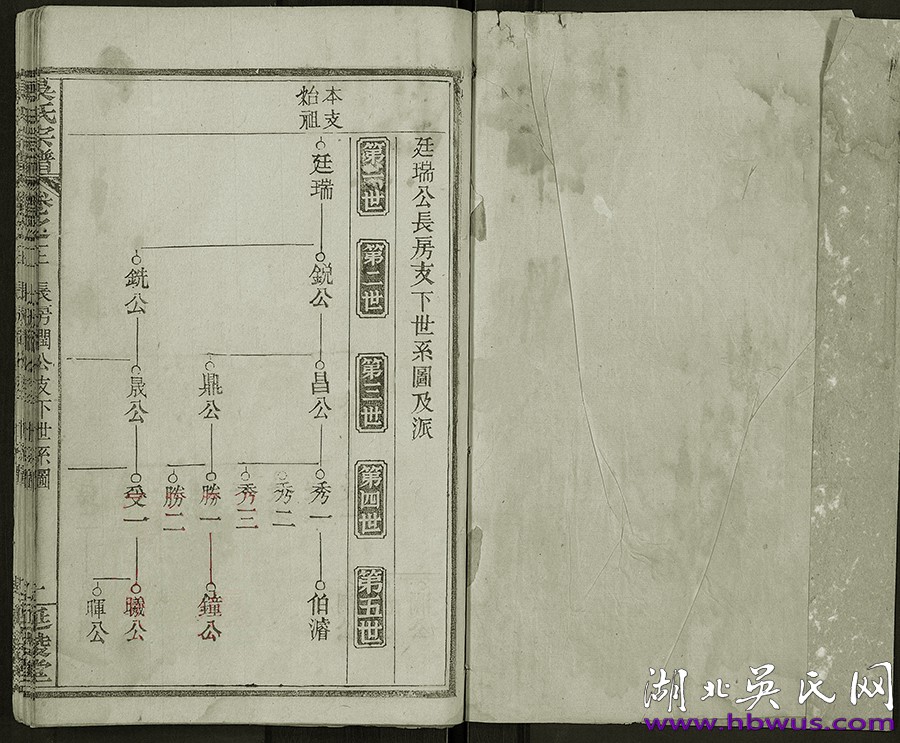 廷瑞公長房支下世系圖及派
第一世
第二世
第三世
第四世
第五世
本支
始祖
廷瑞
銳公
昌公
秀一
伯濬
秀二
秀三
鼎公
勝一
鐘公
勝二
銑公
晟公
受一
曦公
暉公
吳氏宗譜
長房潤公支下世系圖
湖北吳氏网
www.hbwus.com